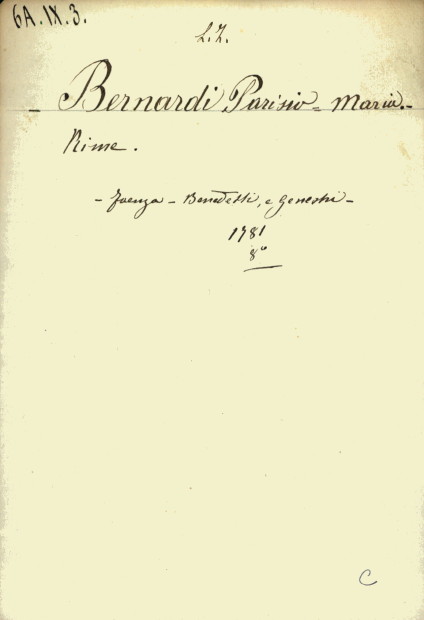 6A.IX.3.
L.I.
- Bernardi Parisio = Maria. -
Rime.
- Faenza - Benedetti, e Genestri -
1781
8°
C